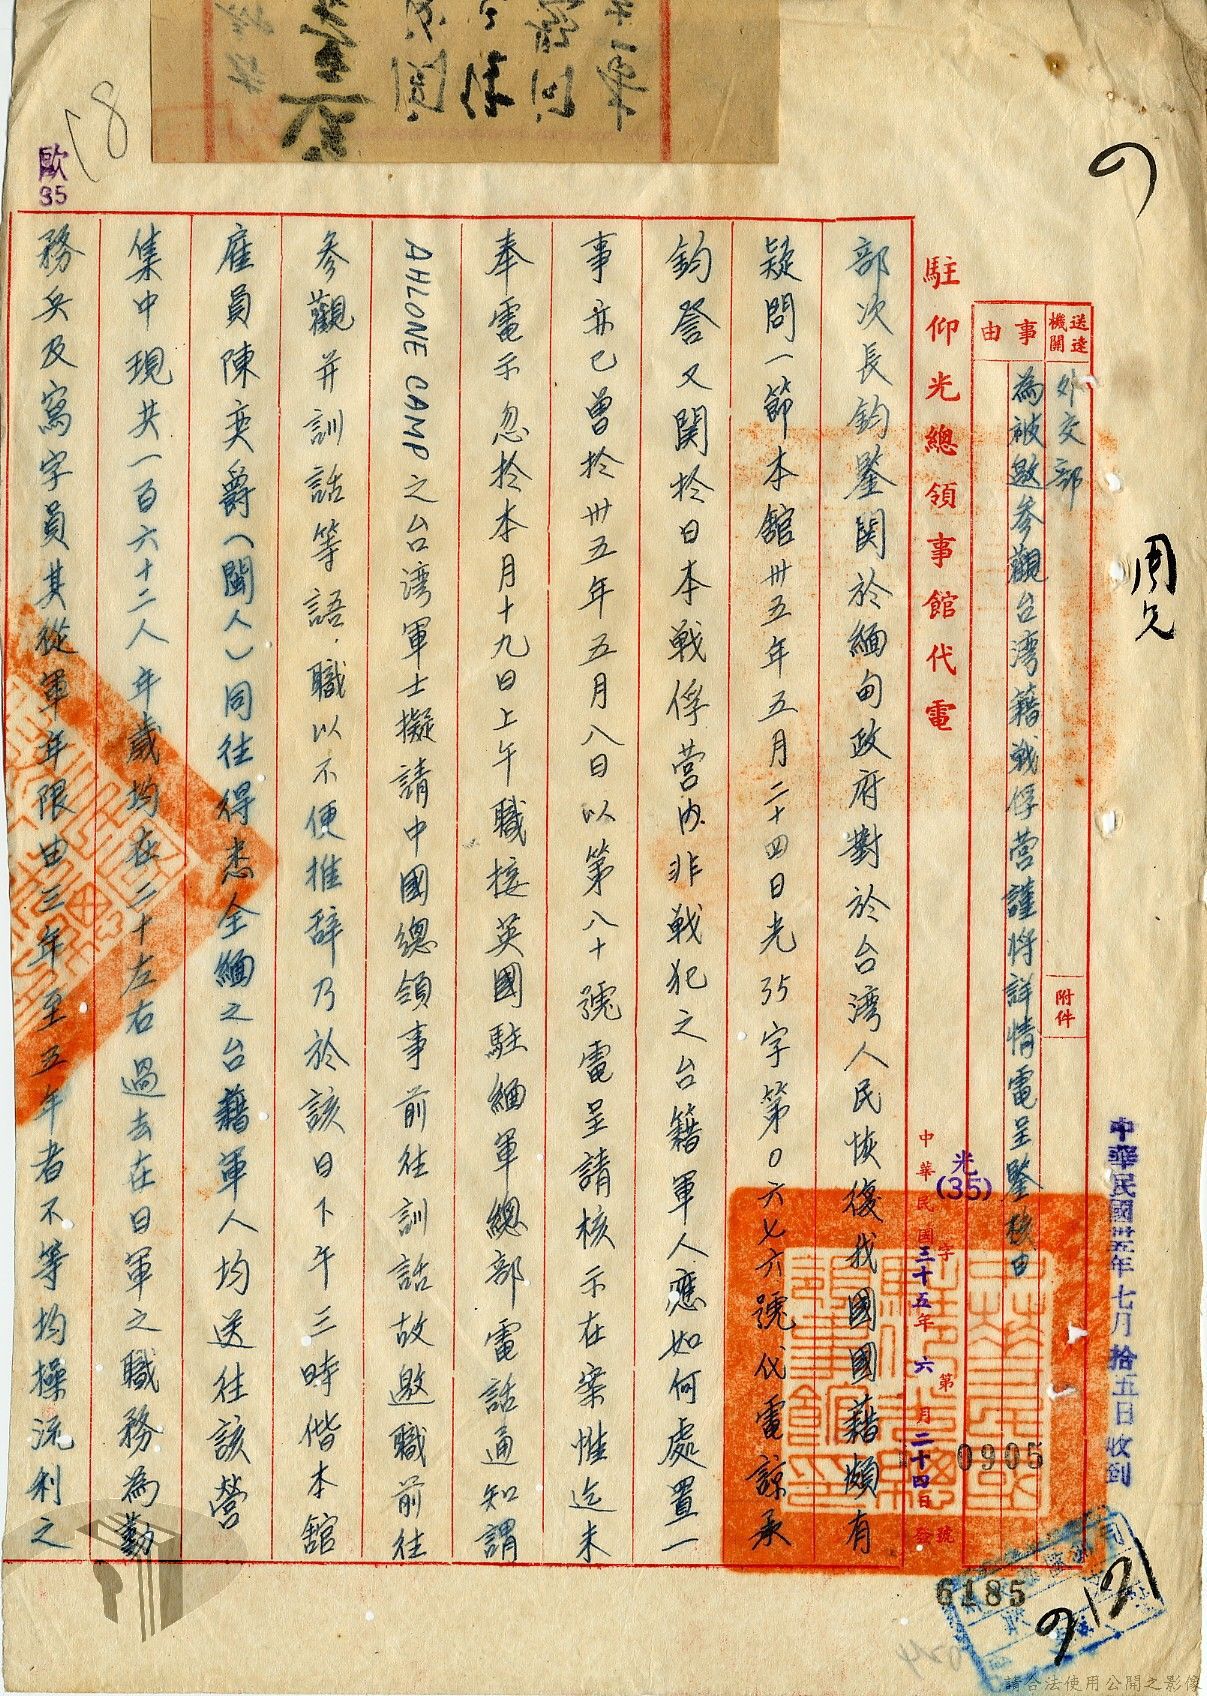 送達機關
外交部
事由
為被邀參觀台湾籍战俘营謹将詳情電呈鑒核由
附件
駐仰光總領事館代電
光(35)字第0905號
中華民國三十五年六月二十四日發
部次長鈞鑒関於緬甸政府對於台湾人民恢復我國國籍頗有
疑問一節本館卅五年五月二十四日光35字第0六七六號代電諒承
鈞詧又関於日本戰俘营內非戰犯之台籍軍人應如何處置一
事亦已曾於卅五年五月八日以第八十號電呈請核示在案惟迄未
奉電示忽於本月十九日上午職接英國駐緬軍總部電話通知謂
AHLONE CAMP之台湾軍士擬請中國總領事前往訓話故邀職前往
參觀并訓話等語．職以不便推辞乃於該日下午三時偕本舘
雇員陳奕爵（閩人）同往得悉全緬之台籍軍人均送往該營
集中現共一百六十二人年歲均在二十左右過去在日軍之職務為勤
務兵及寫字員其從軍年限由三年至五年者不等均操流利之
中華民國卅五年七月拾五日收到
6185
歐
35
18
周兄
請合法使用公開之影像